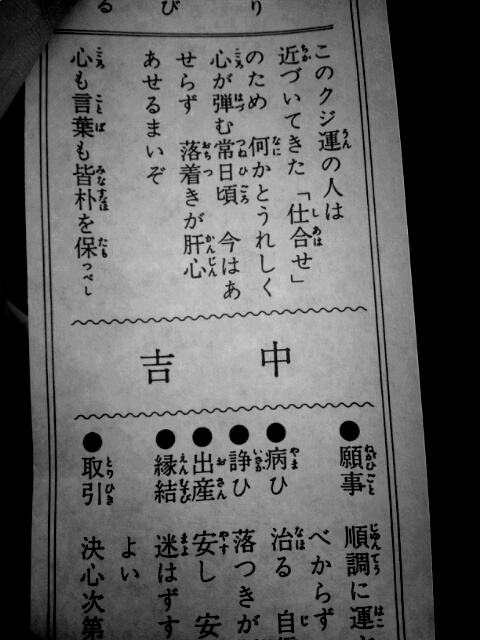 るびり
このクジ運の人は
近づいてきた「仕合せ」
のため 何かとうれしく
心が弾む常日頃 今はあ
せらず 落着きが肝心
あせるまいぞ
心も言葉も皆朴を保つべし
中吉
●願事 順調に運
べからず
●病ひ 治る 自
●諍ひ 落つきが
●出産 安し 安
●縁結 迷はずす
よい
●取引 決心次第